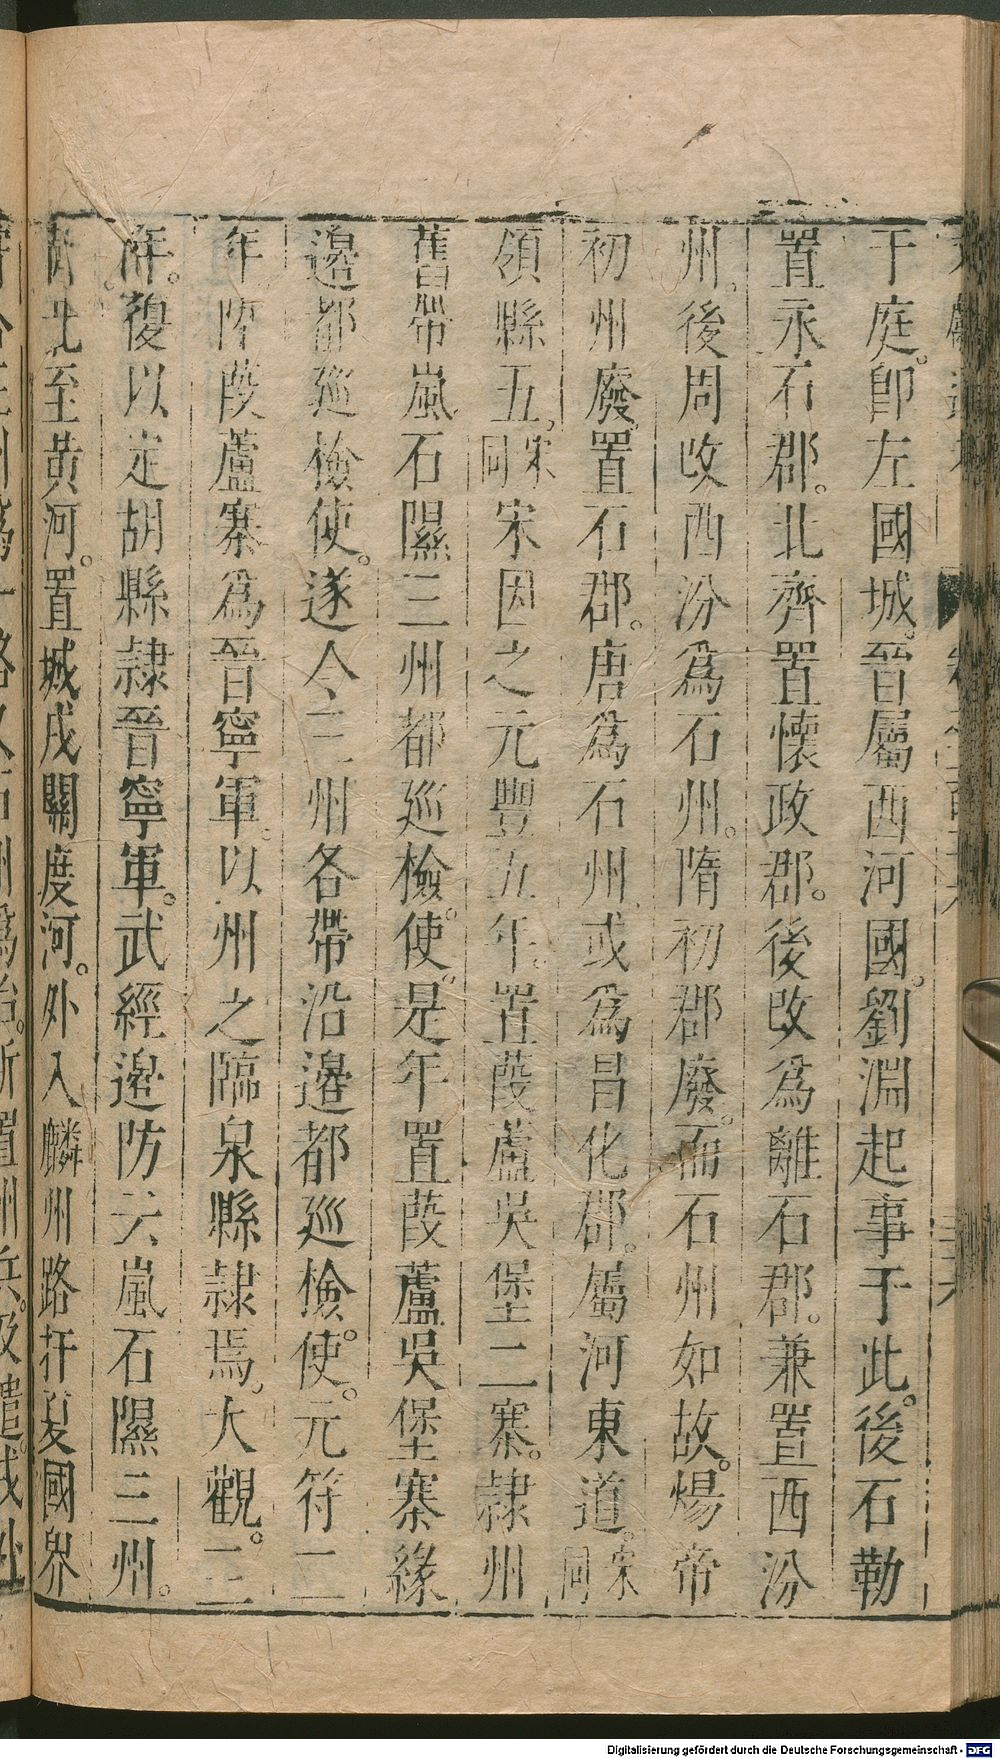 于庭。卽左國城。晉屬西河國。劉淵起事于此。後石勒
置永石郡。北齊置懷政郡。後改爲離石郡。兼置西汾
州。後周改西汾爲石州。隋初郡廢。而石州如故。煬帝
初州廢。置石郡。唐爲石州。或爲昌化郡。屬河東道。宋同
領縣五。宋同宋因之元豐五年。置葭蘆吳堡二寨。隷州
舊帶嵐石隰三州都廵檢使。是年置葭蘆吳堡寨緣
邊都廵檢使。遂令三州各帶沿邊都廵檢使。元符二
年陞葭蘆寨爲晉寧軍。以州之臨泉縣隷焉。大觀。三
年。復以定胡縣隷晉寧軍。武經邊防云嵐石隰三州。
北至黃河。置城戍關度河。外入麟州路扞夏國界
Digitalisierung gefördert durch die Deutsche Forschungsgemeinschaft - DFG